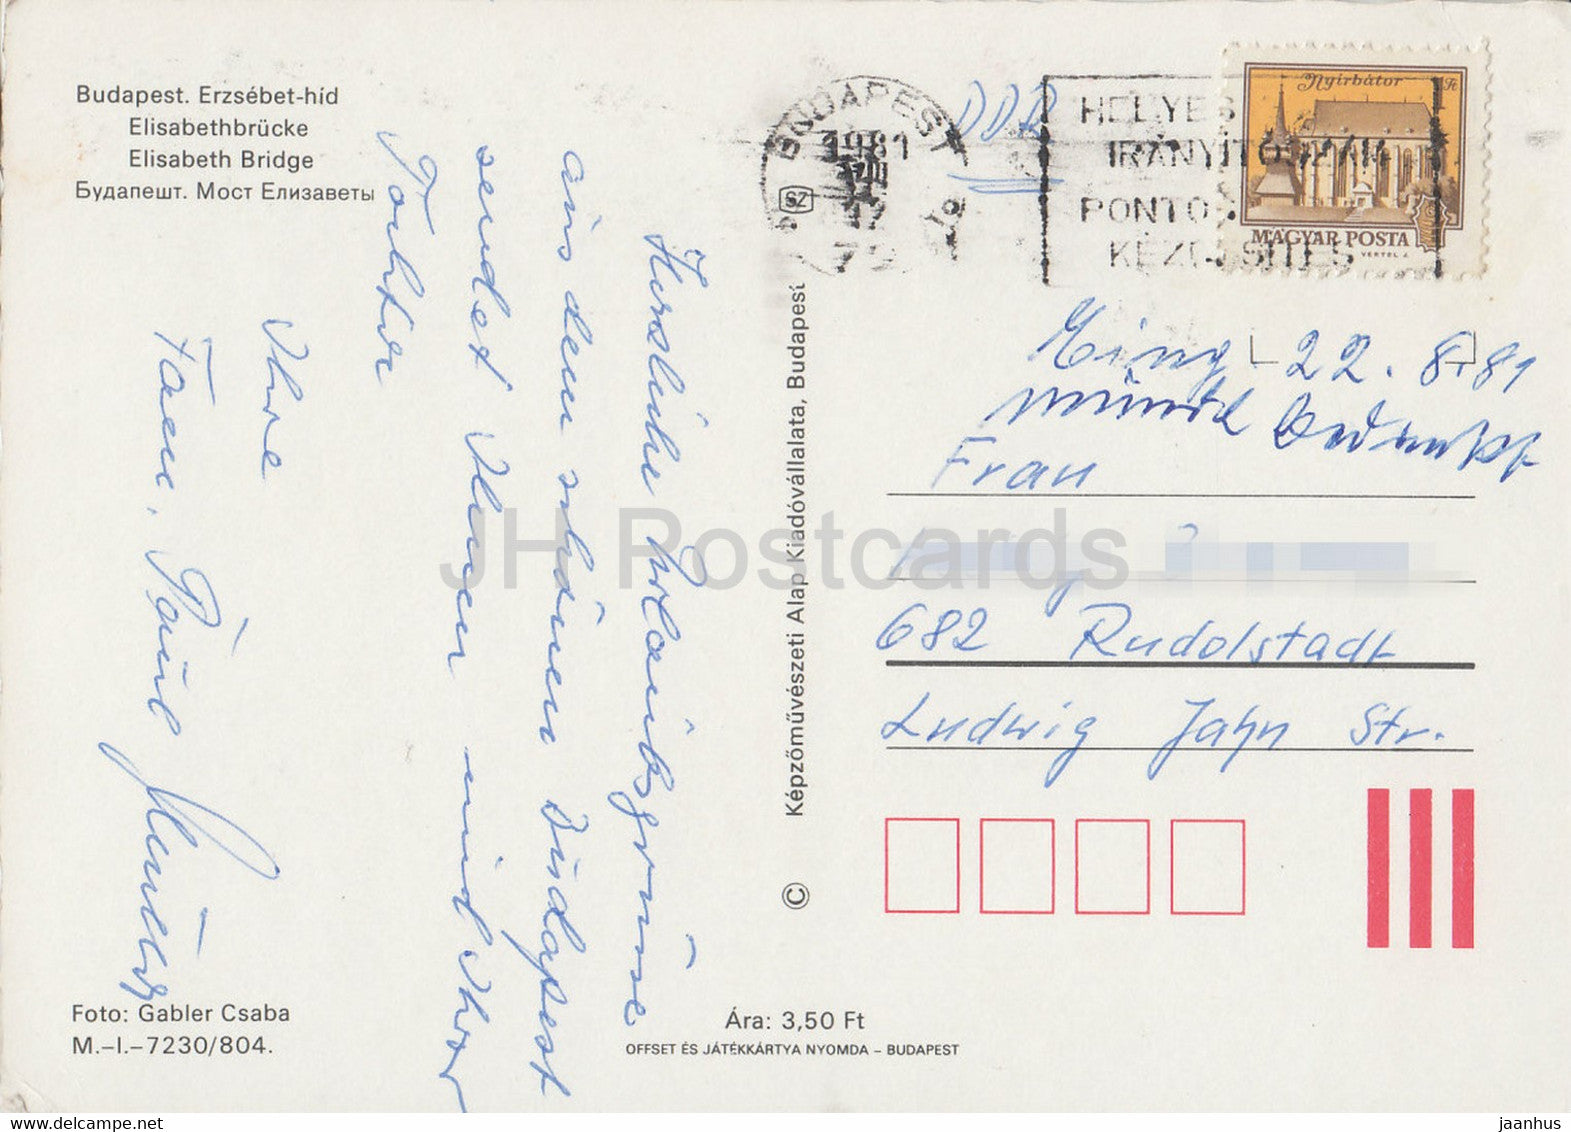 Budapest. Erzsébet-híd
Elisabethbrücke
Elisabeth Bridge
Будапешт. Мост Елизаветы
Herzliche Urlaubsgrüße
aus dem schönen Budapest
sendet Ihnen und Ihrer
Tochter
Ihre
Fam. Paul
Foto: Gabler Csaba
M.–I.–7230/804.
Ára: 3,50 Ft
OFFSET ÉS JÁTÉKKÁRTYA NYOMDA – BUDAPEST
© Képzőművészeti Alap Kiadóvállalata, Budapest
BUDAPEST
1981
VIII
SZ
DDR
HELYES
IRÁNYÍTÓSZÁM
PONTOS
KÉZBESÍTÉS
Nyírbátor
1Ft
MAGYAR POSTA
VERTEL J.
Eing 22.8.81
Frau
682 Rudolstadt
Ludwig Jahn Str.
JH Postcards
www.delcampe.net
jaanhus